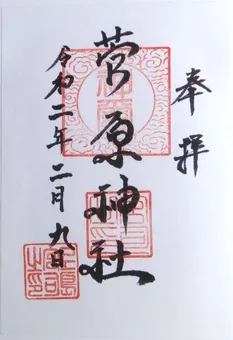 奉拝
菅原神社
令和二年二月九日